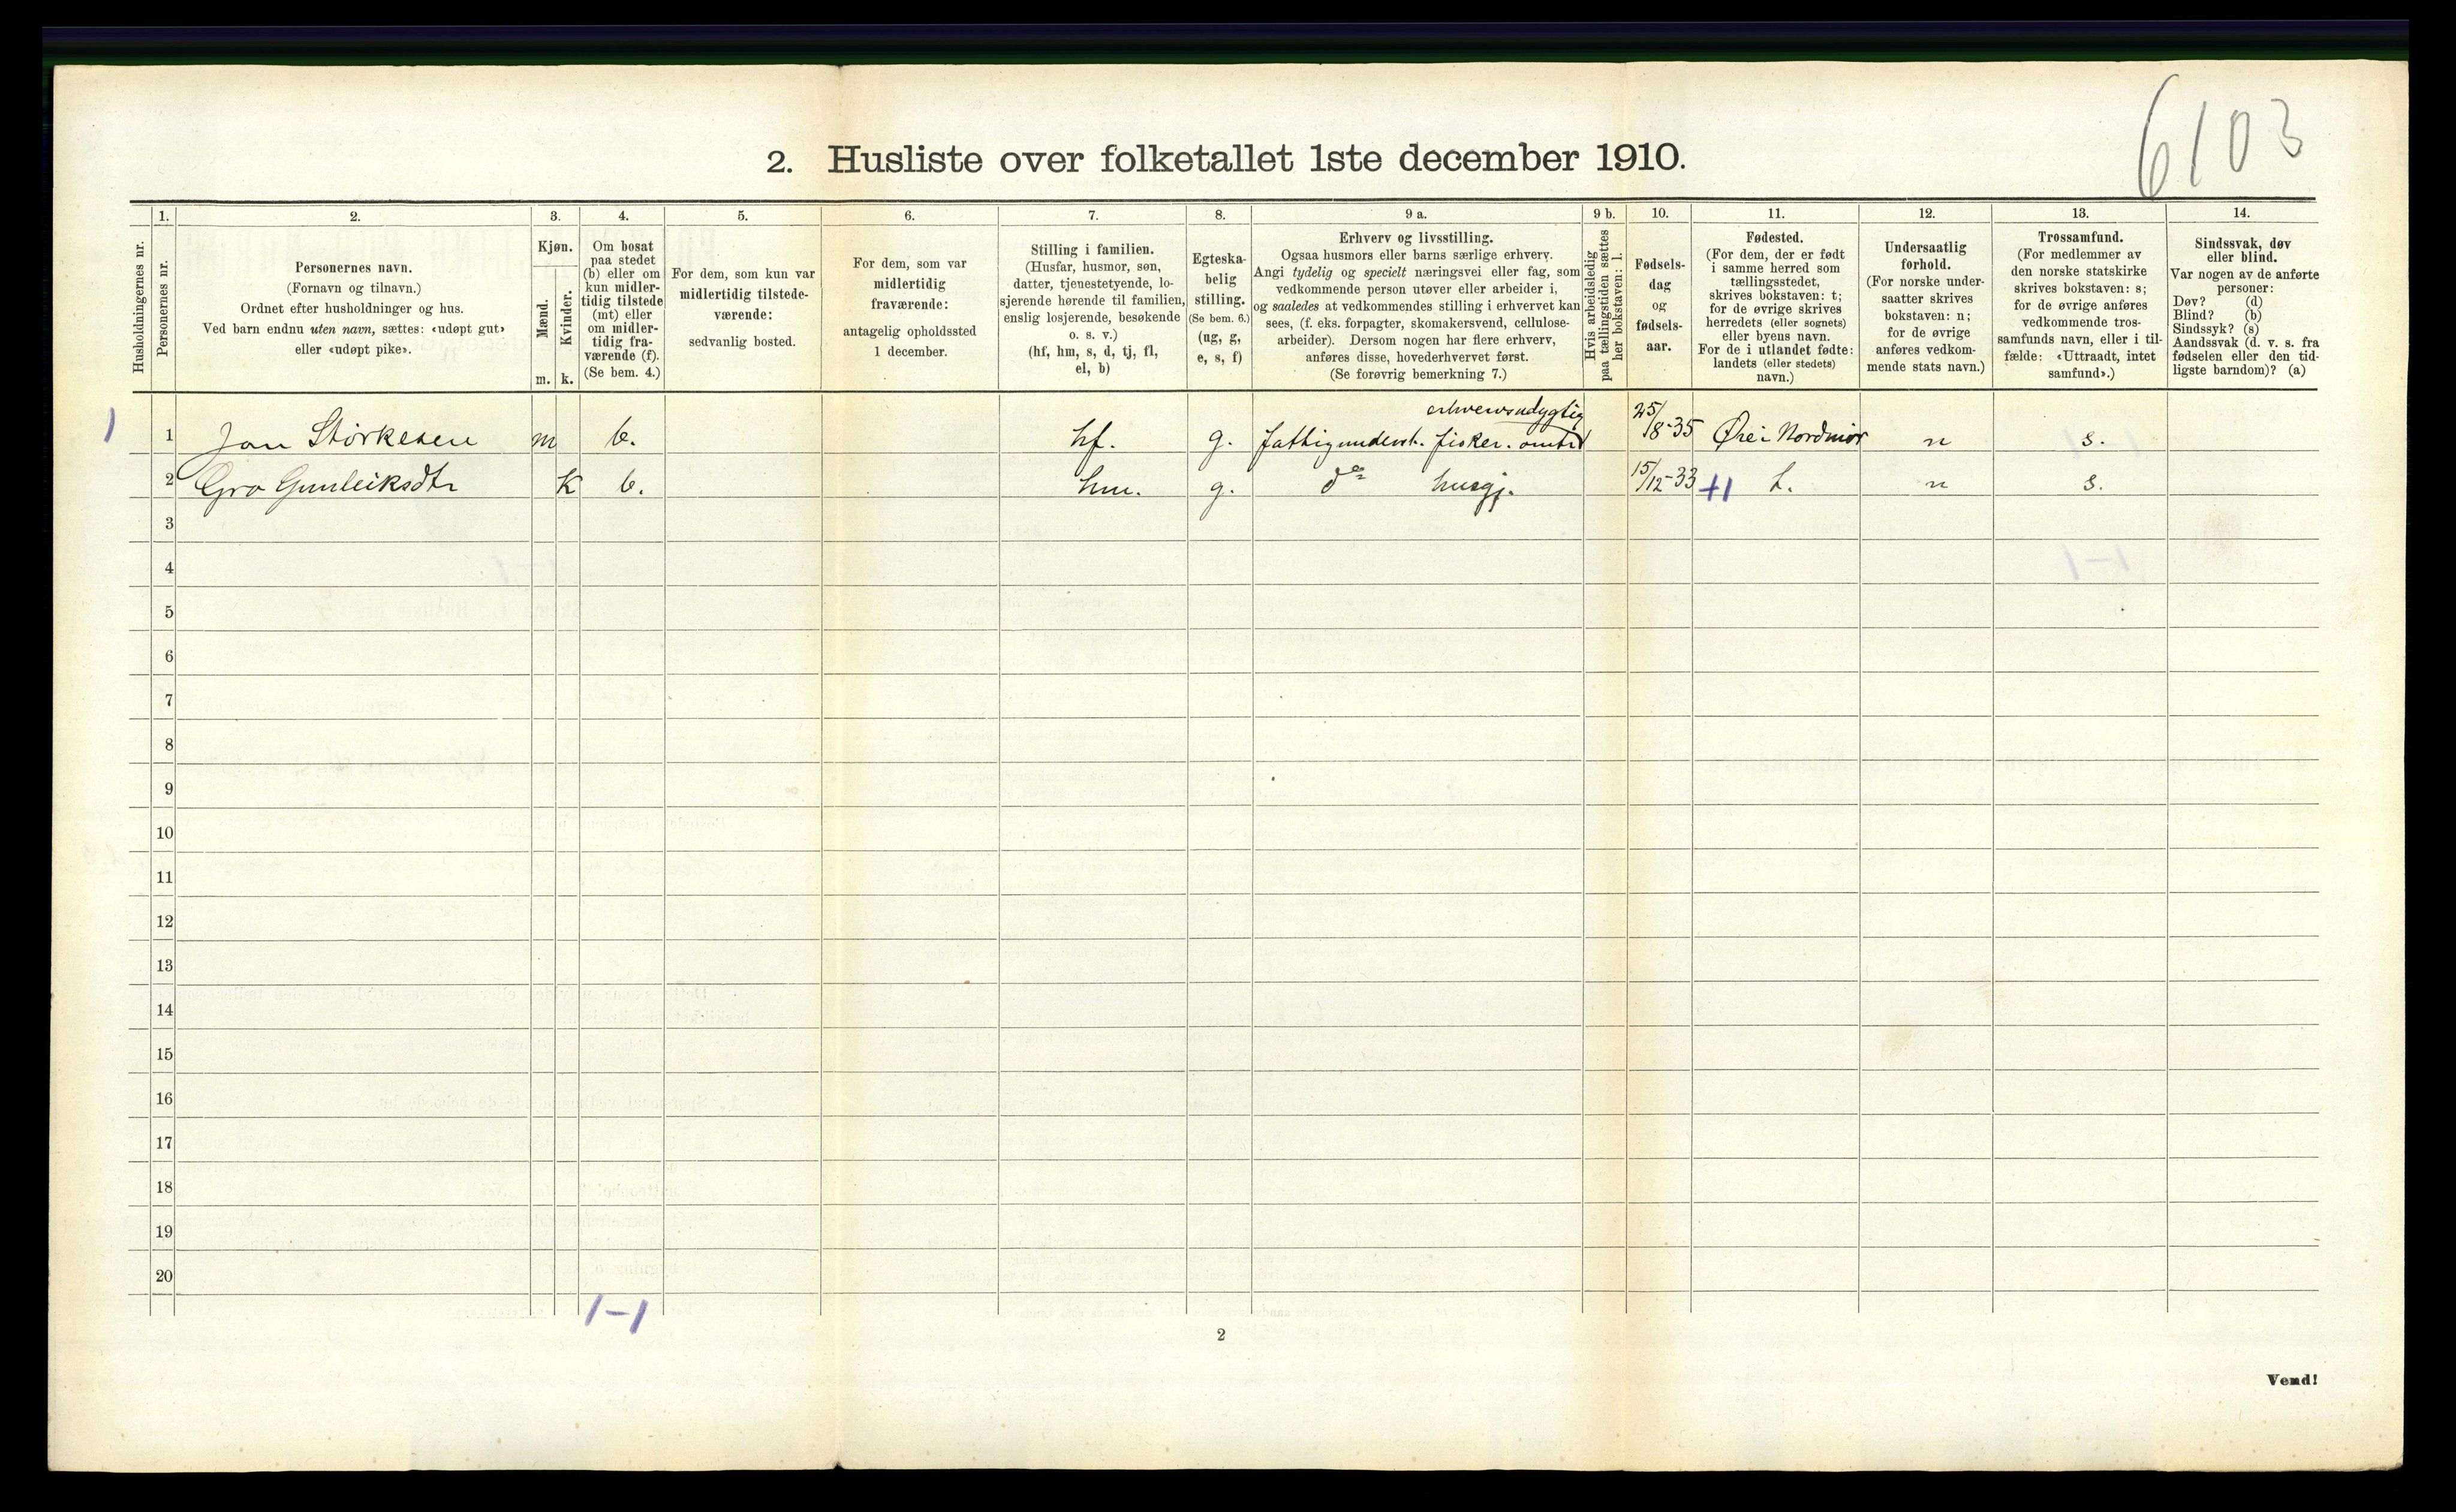 6103
2. Husliste over folketallet 1ste december 1910.
Husholdningernes nr.
1.
Personernes nr.
2.
Personernes navn.
(Fornavn og tilnavn.)
Ordnet efter husholdninger og hus.
Ved barn endnu uten navn, sættes: «udøpt gut»
eller «udøpt pike».
3.
Kjøn.
Mænd.
m.
Kvinder.
k.
4.
Om bosat
paa stedet
(b) eller om
kun midler-
tidig tilstede
(mt) eller
om midler-
tidig fra-
værende (f).
(Se bem. 4.)
5.
For dem, som kun var
midlertidig tilstede-
værende:
sedvanlig bosted.
6.
For dem, som var
midlertidig
fraværende:
antagelig opholdssted
1 december.
7.
Stilling i familien.
(Husfar, husmor, søn,
datter, tjenestetyende, lo-
sjerende hørende til familien,
enslig losjerende, besøkende
o. s. v.)
(hf, hm, s, d, tj, fl,
el, b)
8.
Egteska-
belig
stilling.
(Se bem. 6.)
(ug, g,
e, s, f)
9 a.
Erhverv og livsstilling.
Ogsaa husmors eller barns særlige erhverv.
Angi tydelig og specielt næringsvei eller fag, som
vedkommende person utøver eller arbeider i,
og saaledes at vedkommendes stilling i erhvervet kan
sees, (f. eks. forpagter, skomakersvend, cellulose-
arbeider). Dersom nogen har flere erhverv,
anføres disse, hovederhvervet først.
(Se forøvrig bemerkning 7.)
9 b.
Hvis arbeidsledig
paa tællingstiden sættes
her bokstaven: l.
10.
Fødsels-
dag
og
fødsels-
aar.
11.
Fødested.
(For dem, der er født
i samme herred som
tællingsstedet,
skrives bokstaven: t;
for de øvrige skrives
herredets (eller sognets)
eller byens navn.
For de i utlandet fødte:
landets (eller stedets)
navn.)
12.
Undersaatlig
forhold.
(For norske under-
saatter skrives
bokstaven: n;
for de øvrige
anføres vedkom-
mende stats navn.)
13.
Trossamfund.
(For medlemmer av
den norske statskirke
skrives bokstaven: s;
for de øvrige anføres
vedkommende tros-
samfunds navn, eller i til-
fælde: «Uttraadt, intet
samfund».)
14.
Sindssvak, døv
eller blind.
Var nogen av de anførte
personer:
Døv? (d)
Blind? (b)
Sindssyk? (s)
Aandssvak (d. v. s. fra
fødselen eller den tid-
ligste barndom)? (a)
erhvervsudygtig
1 1 Jon Størkesen m b. hf. g. fattigunderst. fisker. 25/8-35 Øre i Nordmør n s.
2 Gro Gunleiksdtr K b. hm. g. do husgj. 15/12-33 +1 t. n s.
3
4
5
6
7
8
9
10
11
12
13
14
15
16
17
18
19
20
1-1
2
Vend!